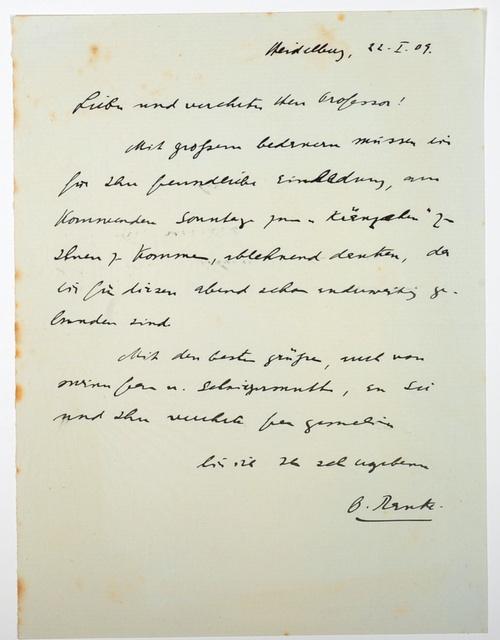 Heidelberg, 22-I-09.
Lieber und verehrter Herr Professor!
Mit grossem bedauern müssen wir
für Ihre freundliche Einladung, am
Kommenden Sonntage zum "Kränzchen" zu
Ihnen zu Kommen, ablehnend danken, da
wir für diesen abend schon anderweitig ge-
bunden sind
Mit den besten grüssen, auch von
meiner frau u. Schwiegermutter, an Sie
und Ihre verehrte frau gemahlin
bin ich Ihr sehr ergebener